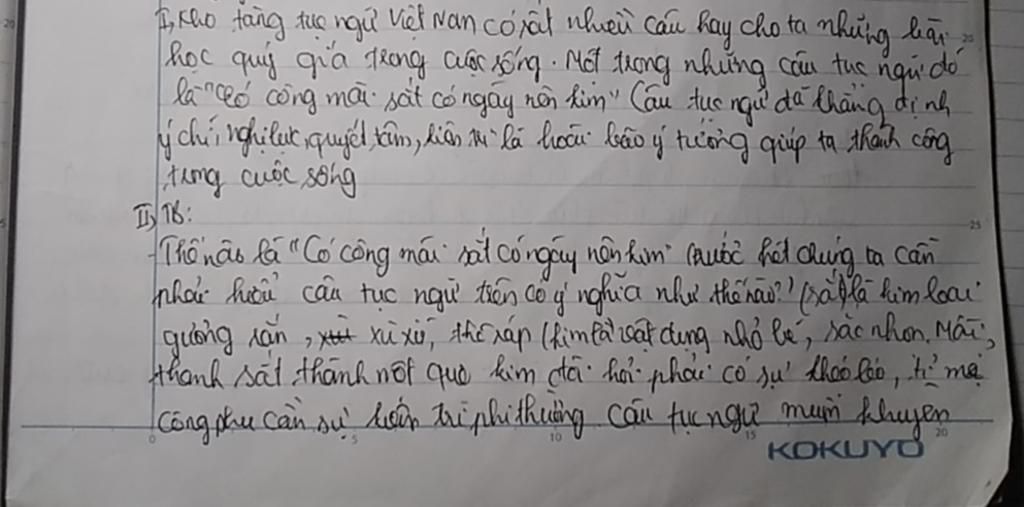 I, Kho tàng tục ngữ Việt Nam có rất nhiều câu hay cho ta những bài
học quý giá trong cuộc sống. Một trong những câu tục ngữ đó
là "Có công mài sắt có ngày nên kim" Câu tục ngữ đã khẳng định
ý chí, nghị lực, quyết tâm, kiên trì là hoài bão ý tưởng giúp ta thành công
trong cuộc sống
II, TB:
Thế nào là "Có công mài sắt có ngày nên kim" trước hết chúng ta cần
phải hiểu câu tục ngữ trên có ý nghĩa như thế nào? (sắt là kim loại
gượng sắn, xù xì, thô ráp (kim là vật dụng nhỏ bé, sắc nhọn. Mài,
thanh sắt thành một que kim đòi hỏi phải có sự khéo léo, tỉ mỉ
công phu cần sự kiên trì phi thường Câu tục ngữ muốn khuyên
KOKUYO
0 5 10 15 20
20
25